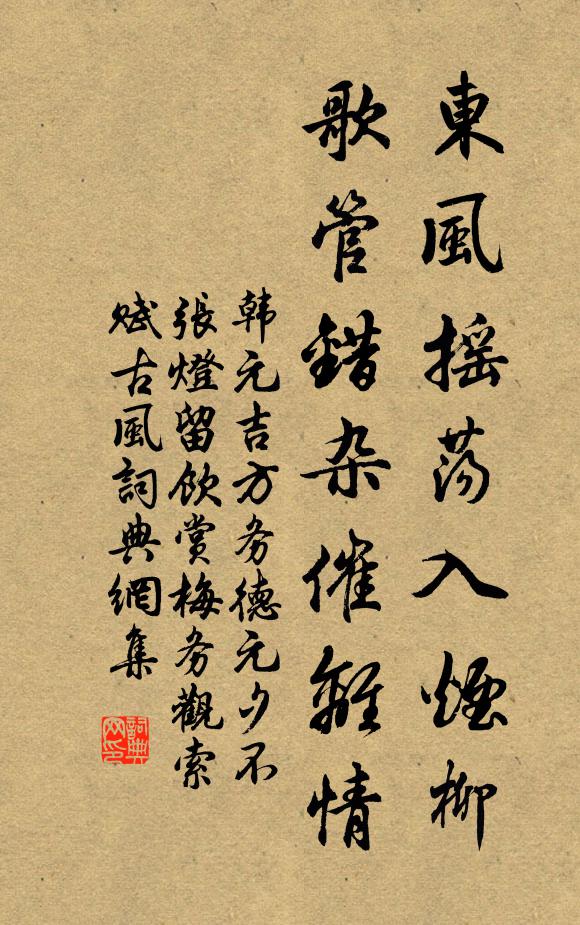 東風摇荡入煙柳
歌管錯杂催離情
韩元吉方务德元夕不
張燈留飲赏梅务觀索
赋古風詞典網集
詞典
网印